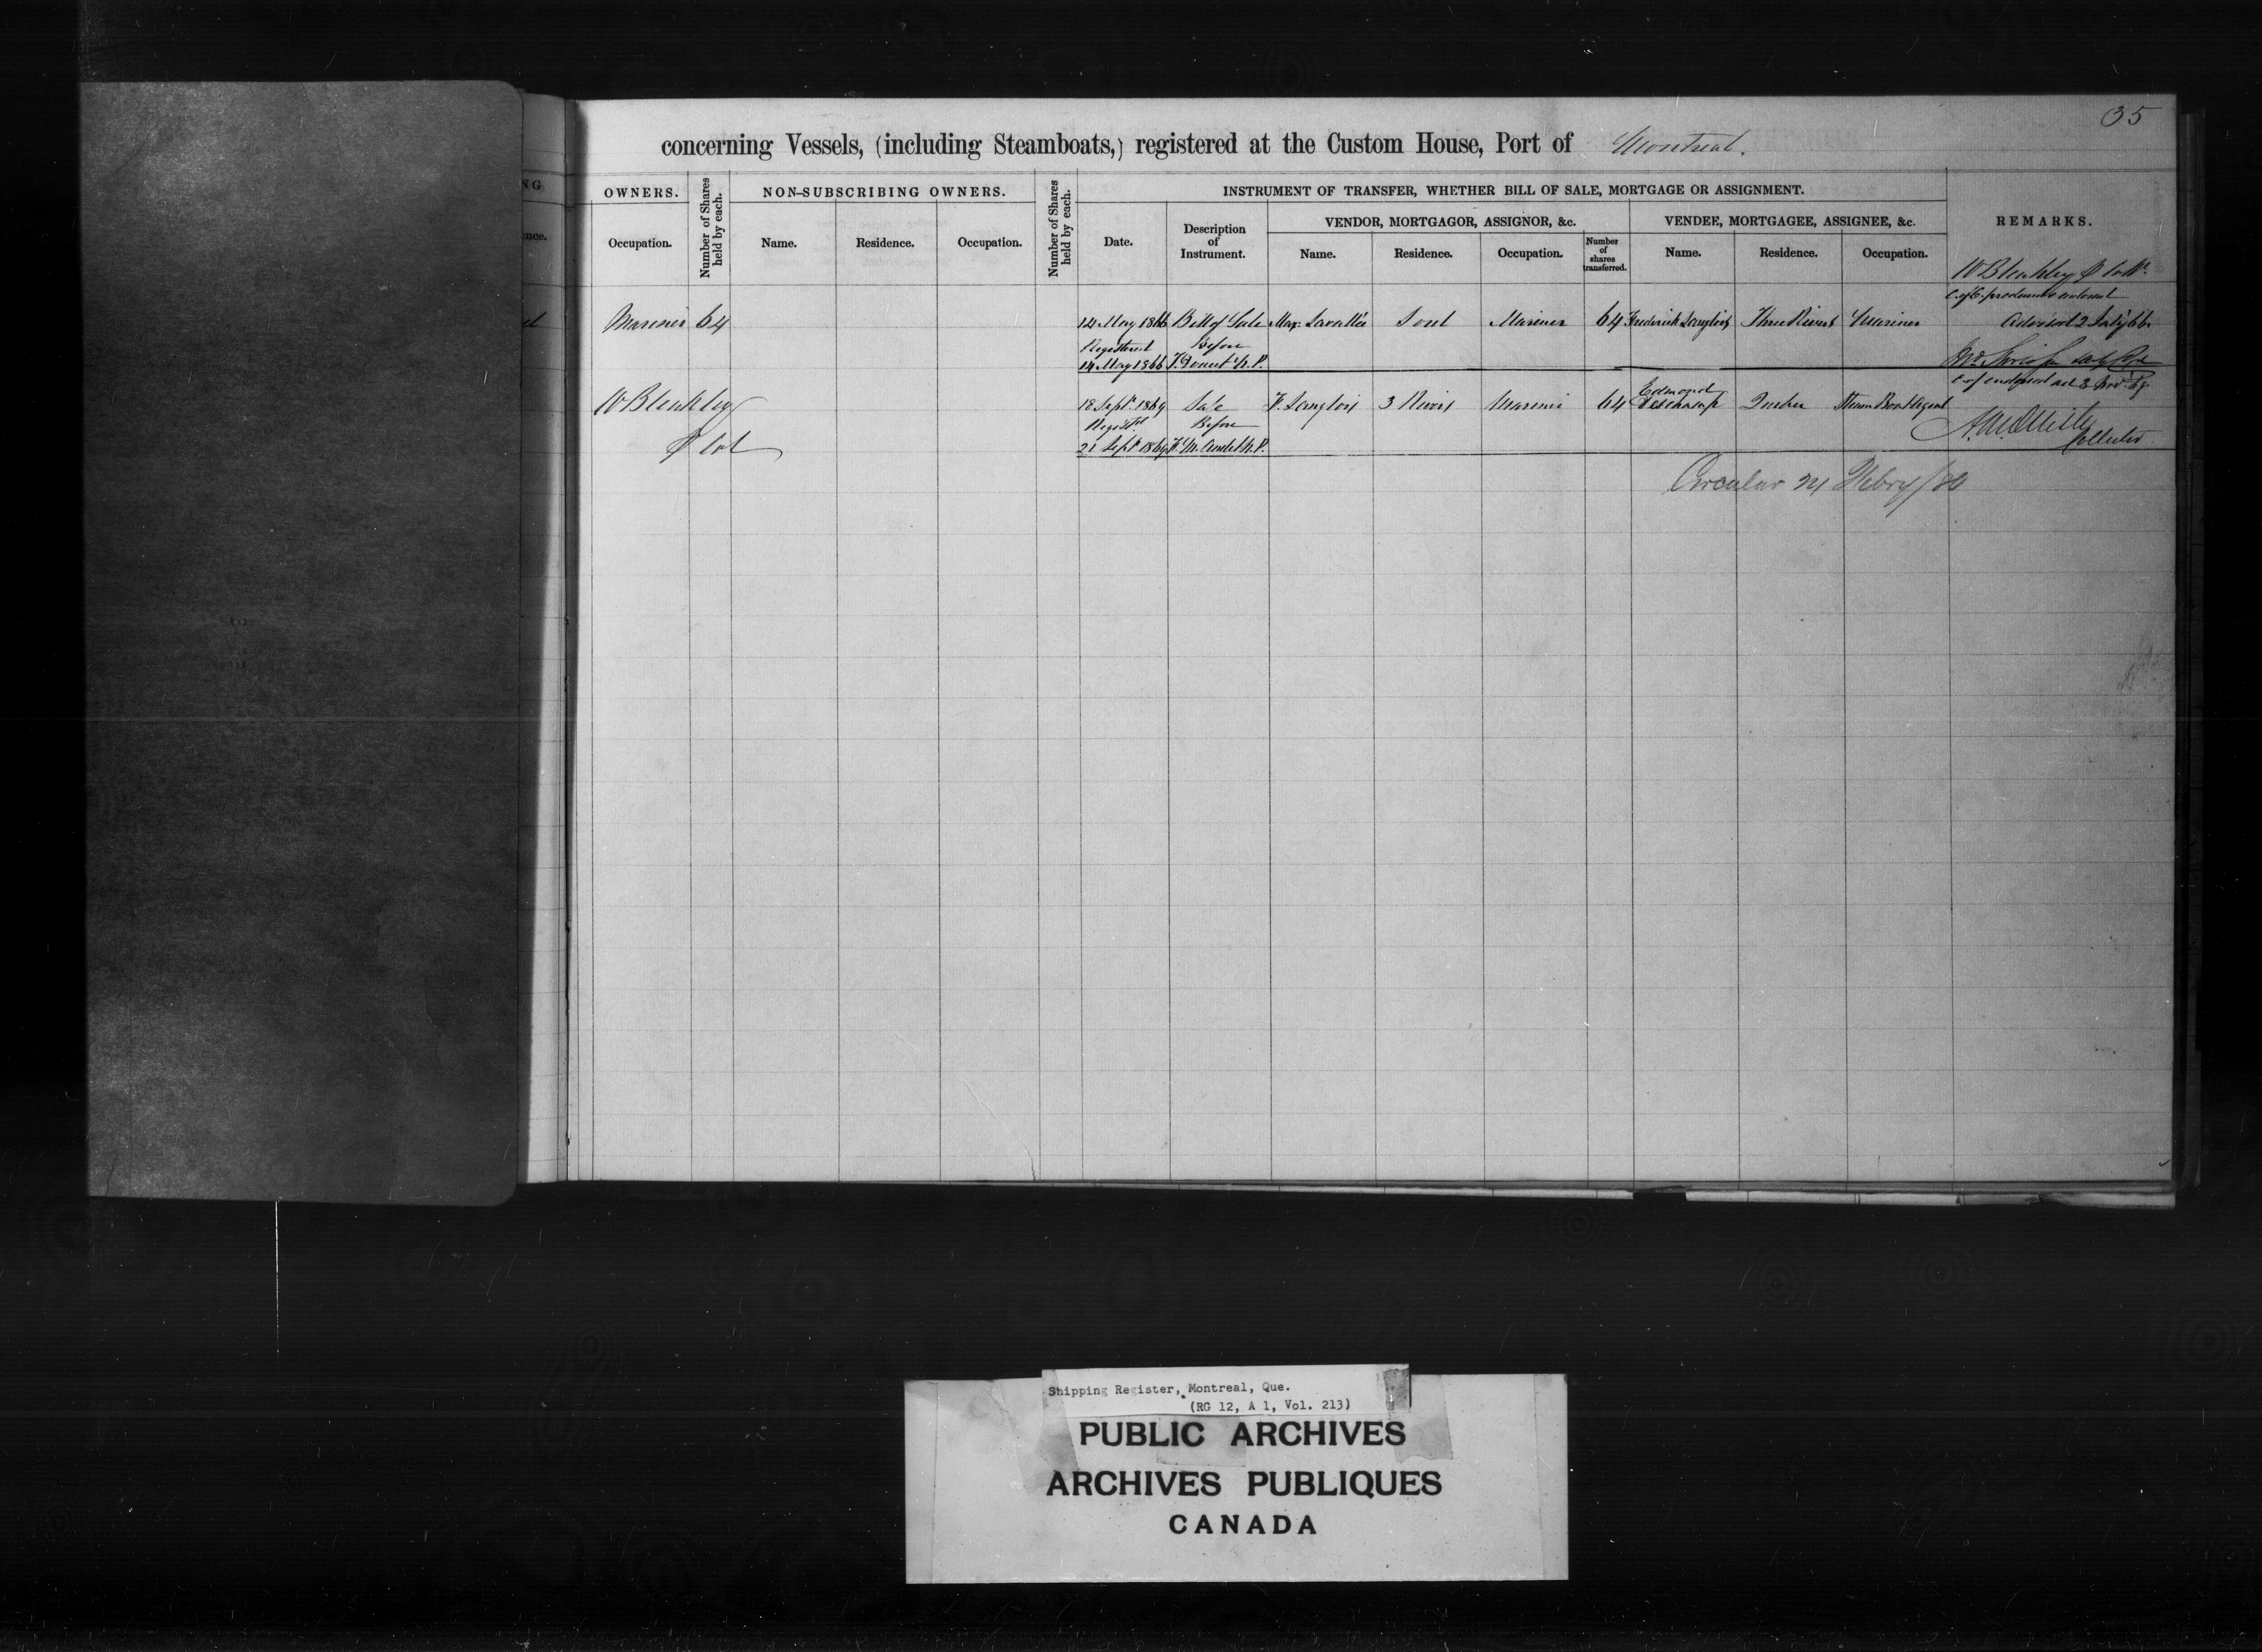 35
concerning Vessels, (including Steamboats,) registered at the Custom House, Port of Montreal.
NG
OWNERS.
Number of Shares held by each.
NON-SUBSCRIBING OWNERS.
Number of Shares held by each.
INSTRUMENT OF TRANSFER, WHETHER BILL OF SALE, MORTGAGE OR ASSIGNMENT.
REMARKS.
nce.
Occupation.
Name.
Residence.
Occupation.
Date.
Description of Instrument.
VENDOR, MORTGAGOR, ASSIGNOR, &c.
VENDEE, MORTGAGEE, ASSIGNEE, &c.
Name.
Residence.
Occupation.
Number of shares transferred.
Name.
Residence.
Occupation.
W Bleakley
Mariner 64
14 May 1866 Bill of Sale Max. Lavallée Sorel Mariner 64 Frederick Langlois Three Rivers Mariner
Registered Before
14 May 1866 N.P.
W Bleakley
18 Sept. 1869 Sale F. Langlois 3 Rivers Mariner 64 Edmond Deschamp Quebec Steam Boat Agent
Registd Before
21 Sept 1869 N.P.
Collector
Circular 24 Febry/80
Shipping Register, Montreal, Que.
(RG 12, A 1, Vol. 213)
PUBLIC ARCHIVES
ARCHIVES PUBLIQUES
CANADA